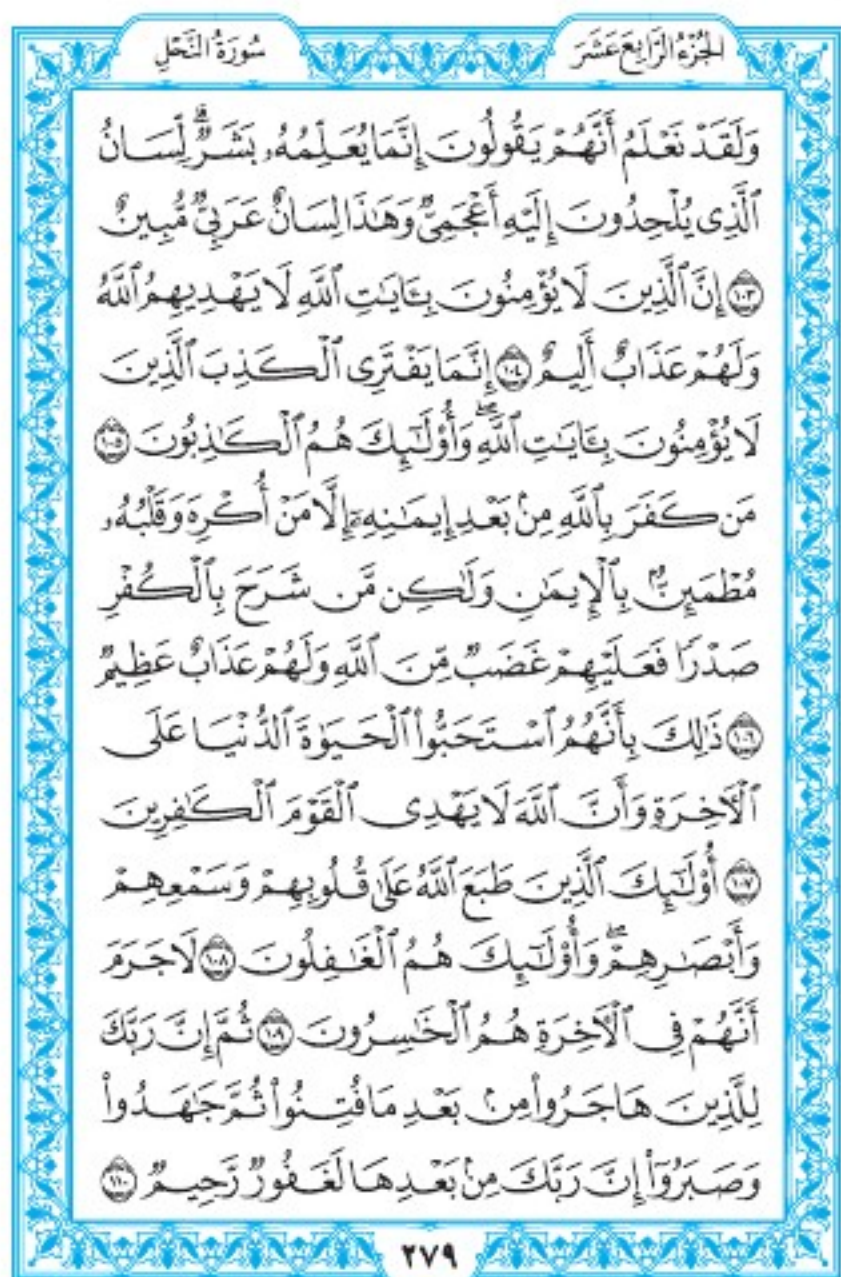 الجُزْءُ الرَّابِعَ عَشَرَ
سُورَةُ النَّحْلِ
وَلَقَدْ نَعْلَمُ أَنَّهُمْ يَقُولُونَ إِنَّمَا يُعَلِّمُهُۥ بَشَرٌۗ لِّسَانُ
ٱلَّذِى يُلْحِدُونَ إِلَيْهِ أَعْجَمِىٌّ وَهَٰذَا لِسَانٌ عَرَبِىٌّ مُّبِينٌ
﴿١٠٣﴾ إِنَّ ٱلَّذِينَ لَا يُؤْمِنُونَ بِـَٔايَٰتِ ٱللَّهِ لَا يَهْدِيهِمُ ٱللَّهُ
وَلَهُمْ عَذَابٌ أَلِيمٌ ﴿١٠٤﴾ إِنَّمَا يَفْتَرِى ٱلْكَذِبَ ٱلَّذِينَ
لَا يُؤْمِنُونَ بِـَٔايَٰتِ ٱللَّهِۖ وَأُو۟لَٰٓئِكَ هُمُ ٱلْكَٰذِبُونَ ﴿١٠٥﴾
مَن كَفَرَ بِٱللَّهِ مِنۢ بَعْدِ إِيمَٰنِهِۦٓ إِلَّا مَنْ أُكْرِهَ وَقَلْبُهُۥ
مُطْمَئِنٌّۢ بِٱلْإِيمَٰنِ وَلَٰكِن مَّن شَرَحَ بِٱلْكُفْرِ
صَدْرًا فَعَلَيْهِمْ غَضَبٌ مِّنَ ٱللَّهِ وَلَهُمْ عَذَابٌ عَظِيمٌ
﴿١٠٦﴾ ذَٰلِكَ بِأَنَّهُمُ ٱسْتَحَبُّوا۟ ٱلْحَيَوٰةَ ٱلدُّنْيَا عَلَى
ٱلْءَاخِرَةِ وَأَنَّ ٱللَّهَ لَا يَهْدِى ٱلْقَوْمَ ٱلْكَٰفِرِينَ
﴿١٠٧﴾ أُو۟لَٰٓئِكَ ٱلَّذِينَ طَبَعَ ٱللَّهُ عَلَىٰ قُلُوبِهِمْ وَسَمْعِهِمْ
وَأَبْصَٰرِهِمْۖ وَأُو۟لَٰٓئِكَ هُمُ ٱلْغَٰفِلُونَ ﴿١٠٨﴾ لَا جَرَمَ
أَنَّهُمْ فِى ٱلْءَاخِرَةِ هُمُ ٱلْخَٰسِرُونَ ﴿١٠٩﴾ ثُمَّ إِنَّ رَبَّكَ
لِلَّذِينَ هَاجَرُوا۟ مِنۢ بَعْدِ مَا فُتِنُوا۟ ثُمَّ جَٰهَدُوا۟
وَصَبَرُوٓا۟ إِنَّ رَبَّكَ مِنۢ بَعْدِهَا لَغَفُورٌ رَّحِيمٌ ﴿١١٠﴾
٢٧٩